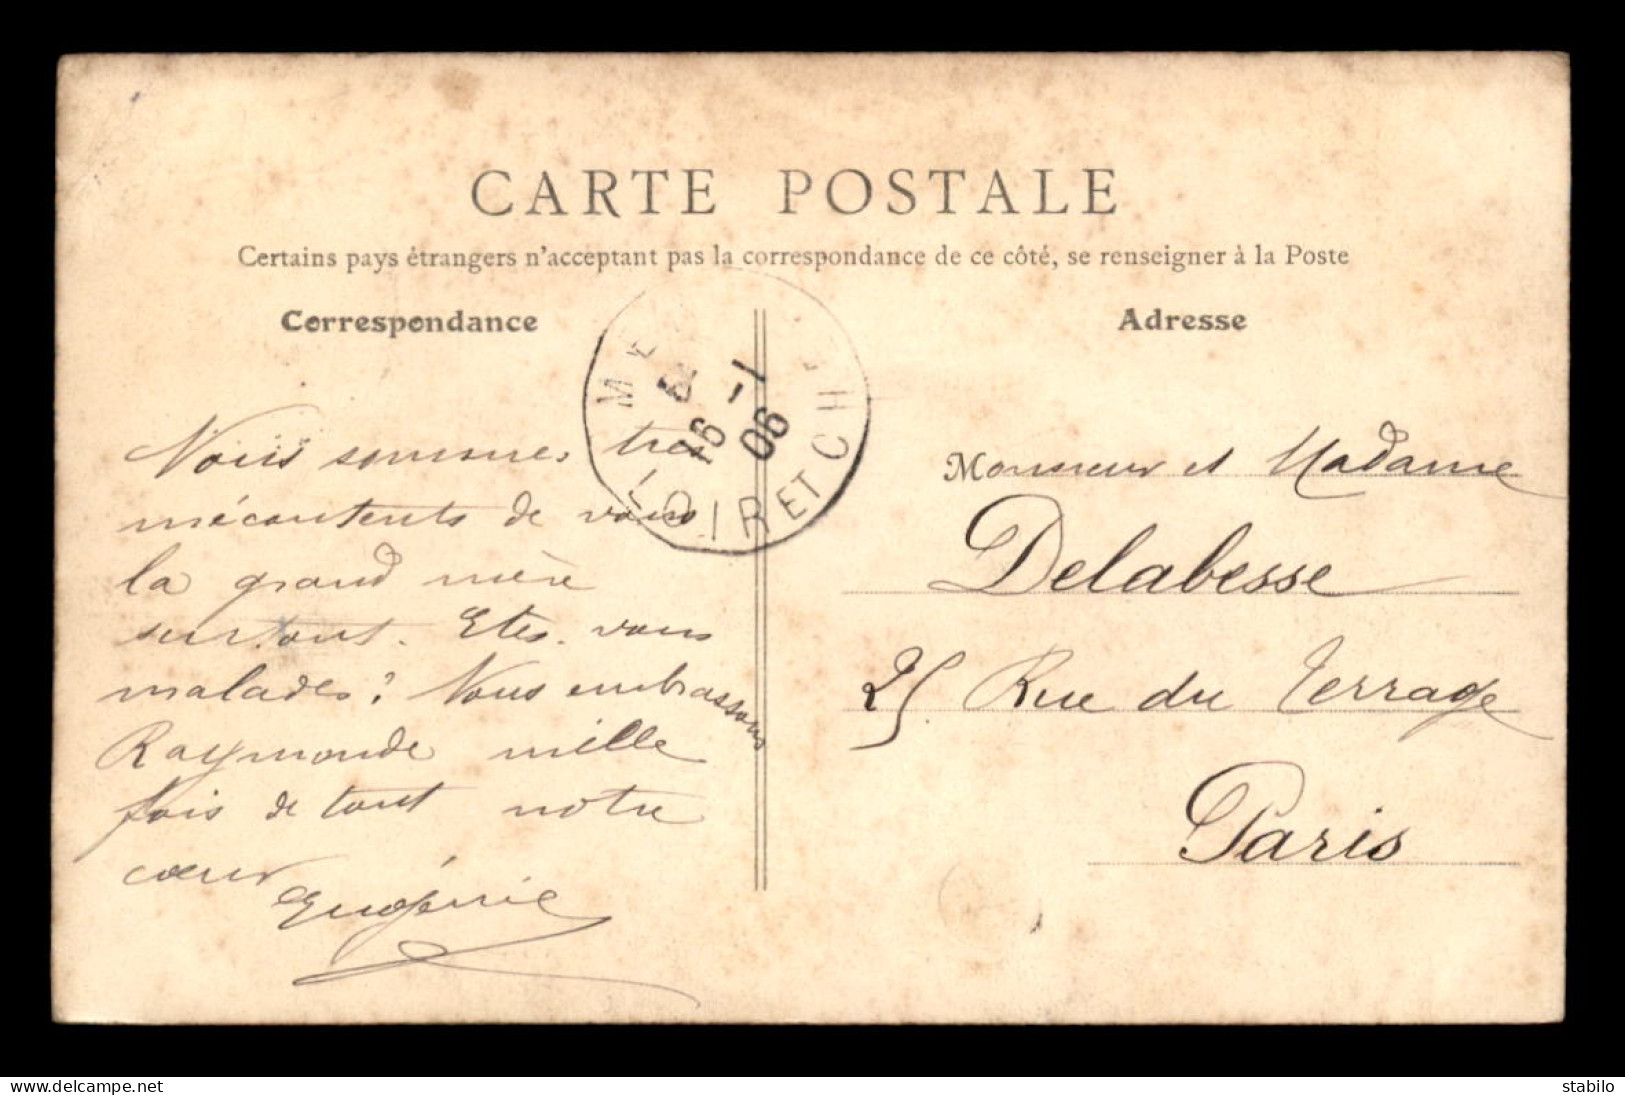 CARTE POSTALE
Certains pays étrangers n'acceptant pas la correspondance de ce côté, se renseigner à la Poste
Correspondance
Adresse
LOIR ET CH
16 -1
06
Nous sommes très
mécontents de vous
la grand mère
surtout. Etes-vous
malades? Nous embrassons
Raymonde mille
fois de tout notre
cœur
Eugénie
Monsieur et Madame
Delabesse
25 Rue du Terrage
Paris
www.delcampe.net
stabilo